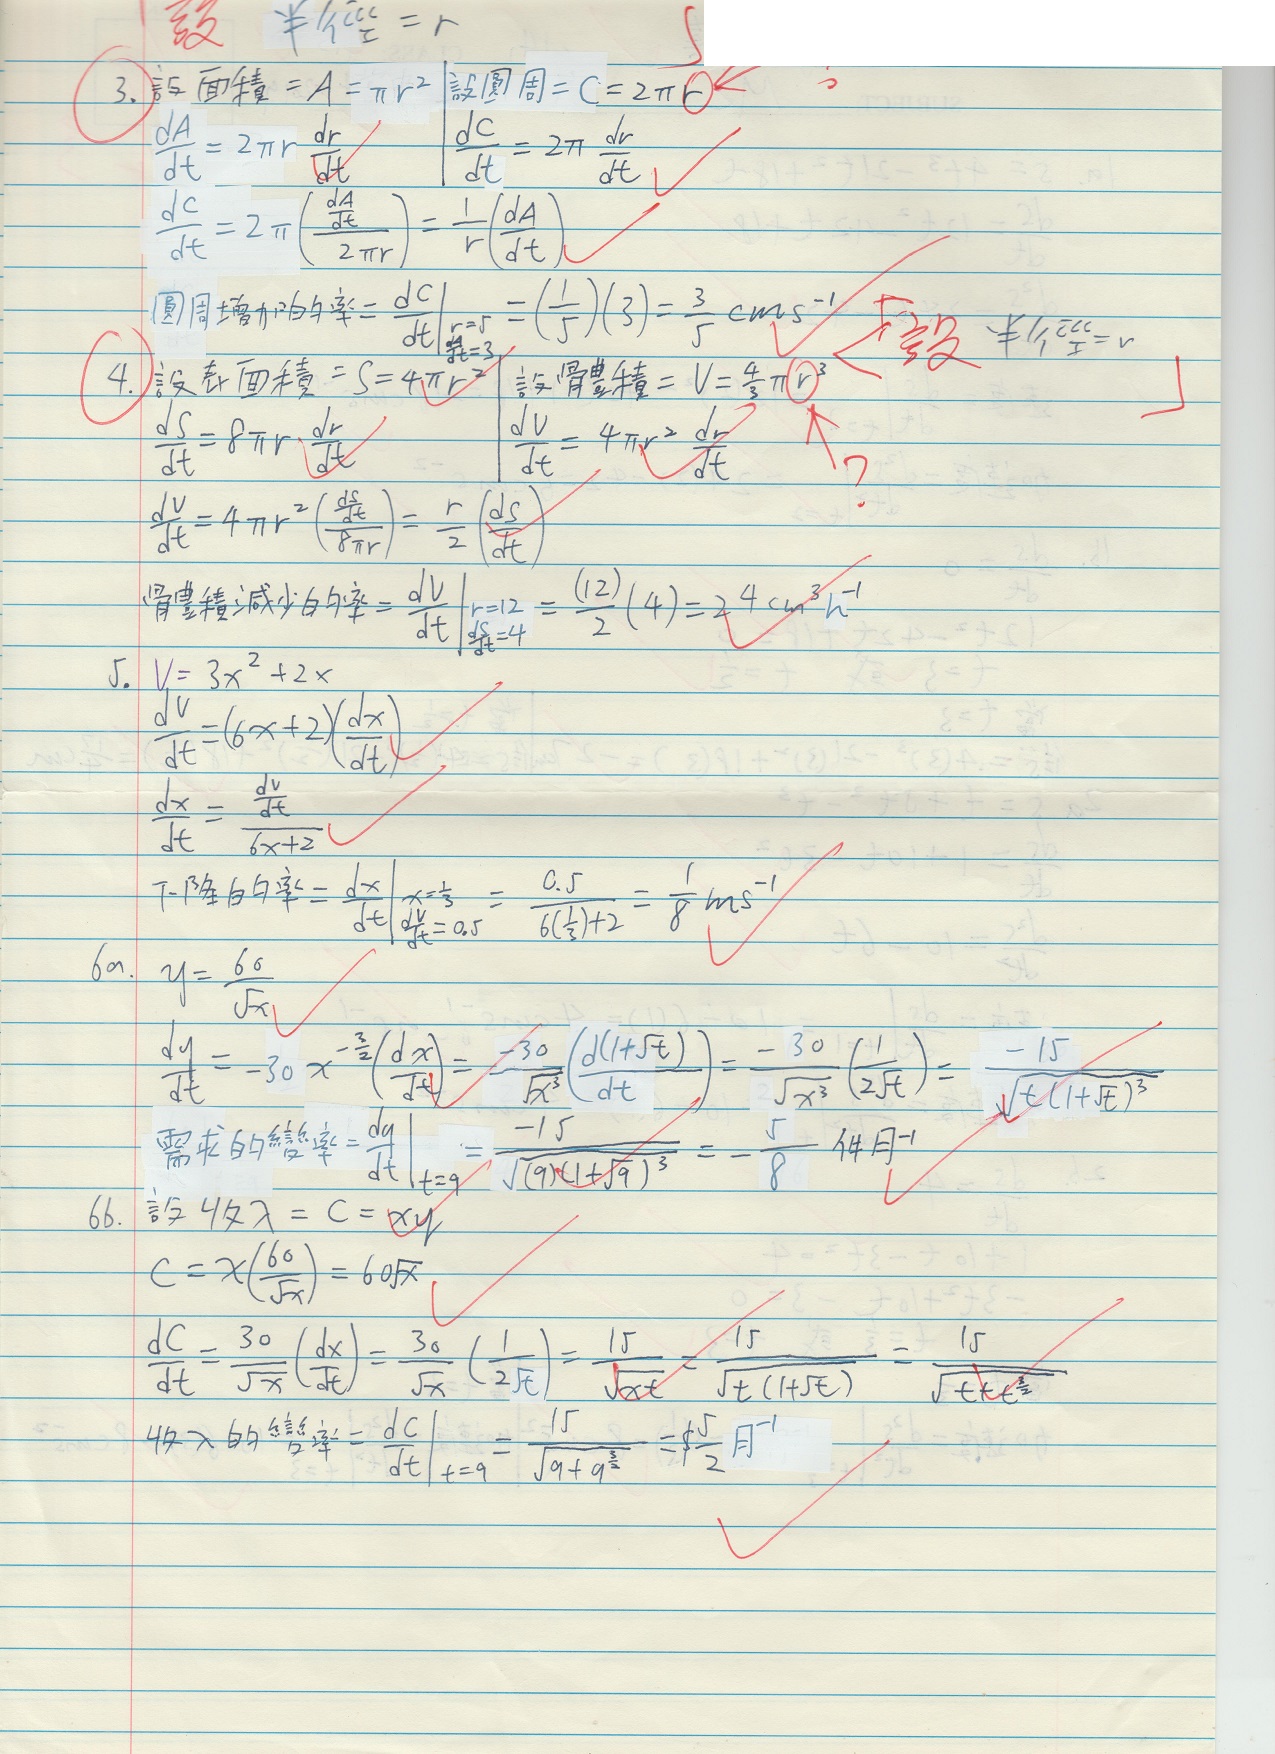 設 半徑 = r
3. 設面積 = A = πr² | 設圓周 = C = 2πr
dA/dt = 2πr dr/dt | dC/dt = 2π dr/dt
dC/dt = 2π((dA/dt)/(2πr)) = 1/r (dA/dt)
圓周增加的率 = dC/dt | r=5, dA/dt=3 = (1/5)(3) = 3/5 cms⁻¹
設 半徑 = r
4. 設表面積 = S = 4πr² | 設體積 = V = 4/3 πr³
dS/dt = 8πr dr/dt | dV/dt = 4πr² dr/dt
?
dV/dt = 4πr² ((dS/dt)/(8πr)) = r/2 (dS/dt)
體積減少的率 = dV/dt | r=12, dS/dt=4 = (12)/2 (4) = 24 cm³ h⁻¹
5. V = 3x² + 2x
dV/dt = (6x+2)(dx/dt)
dx/dt = (dV/dt)/(6x+2)
下降的率 = dx/dt | x=1/3, dV/dt=0.5 = 0.5/(6(1/3)+2) = 1/8 ms⁻¹
6a. y = 60/√x
dy/dt = -30x^(-3/2) (dx/dt) = -30/√x³ (d(1+√t)/dt) = -30/√x³ (1/(2√t)) = -15/√(t(1+√t)³)
需求的變率 = dy/dt | t=9 = -15/√((9)(1+√9)³) = -5/8 件月⁻¹
6b. 設收入 = C = xy
C = x(60/√x) = 60√x
dC/dt = 30/√x (dx/dt) = 30/√x (1/(2√t)) = 15/√(xt) = 15/√(t(1+√t)) = 15/√(t+t^(3/2))
收入的變率 = dC/dt | t=9 = 15/√(9+9^(3/2)) = $5/2 月⁻¹